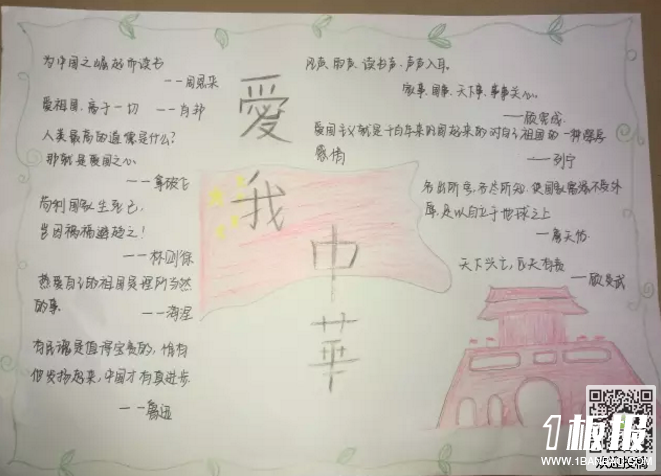 为中国之崛起而读书
——周恩来
爱祖国,高于一切 ——肖邦
人类最高的道德是什么?
那就是爱国之心
——拿破仑
苟利国家生死已,
岂因祸福避趋之!
——林则徐
热爱自己的祖国是理所当然
的事
——海涅
有民魂是值得宝贵的,惟有
他发扬起来,中国才有真进步
——鲁迅
愛
我
中
華
风声、雨声、读书声,声声入耳。
家事、国事、天下事、事事关心。
——顾宪成
爱国主义就是千百年来的固起来的对自己祖国的一种深厚
感情
——列宁
各出所学,各尽所知,使国家富强不受外
辱,足以自立于地球之上
——詹天佑
天下兴亡,匹夫有责
——顾炎武
1板报
WWW.1BANBAO.COM